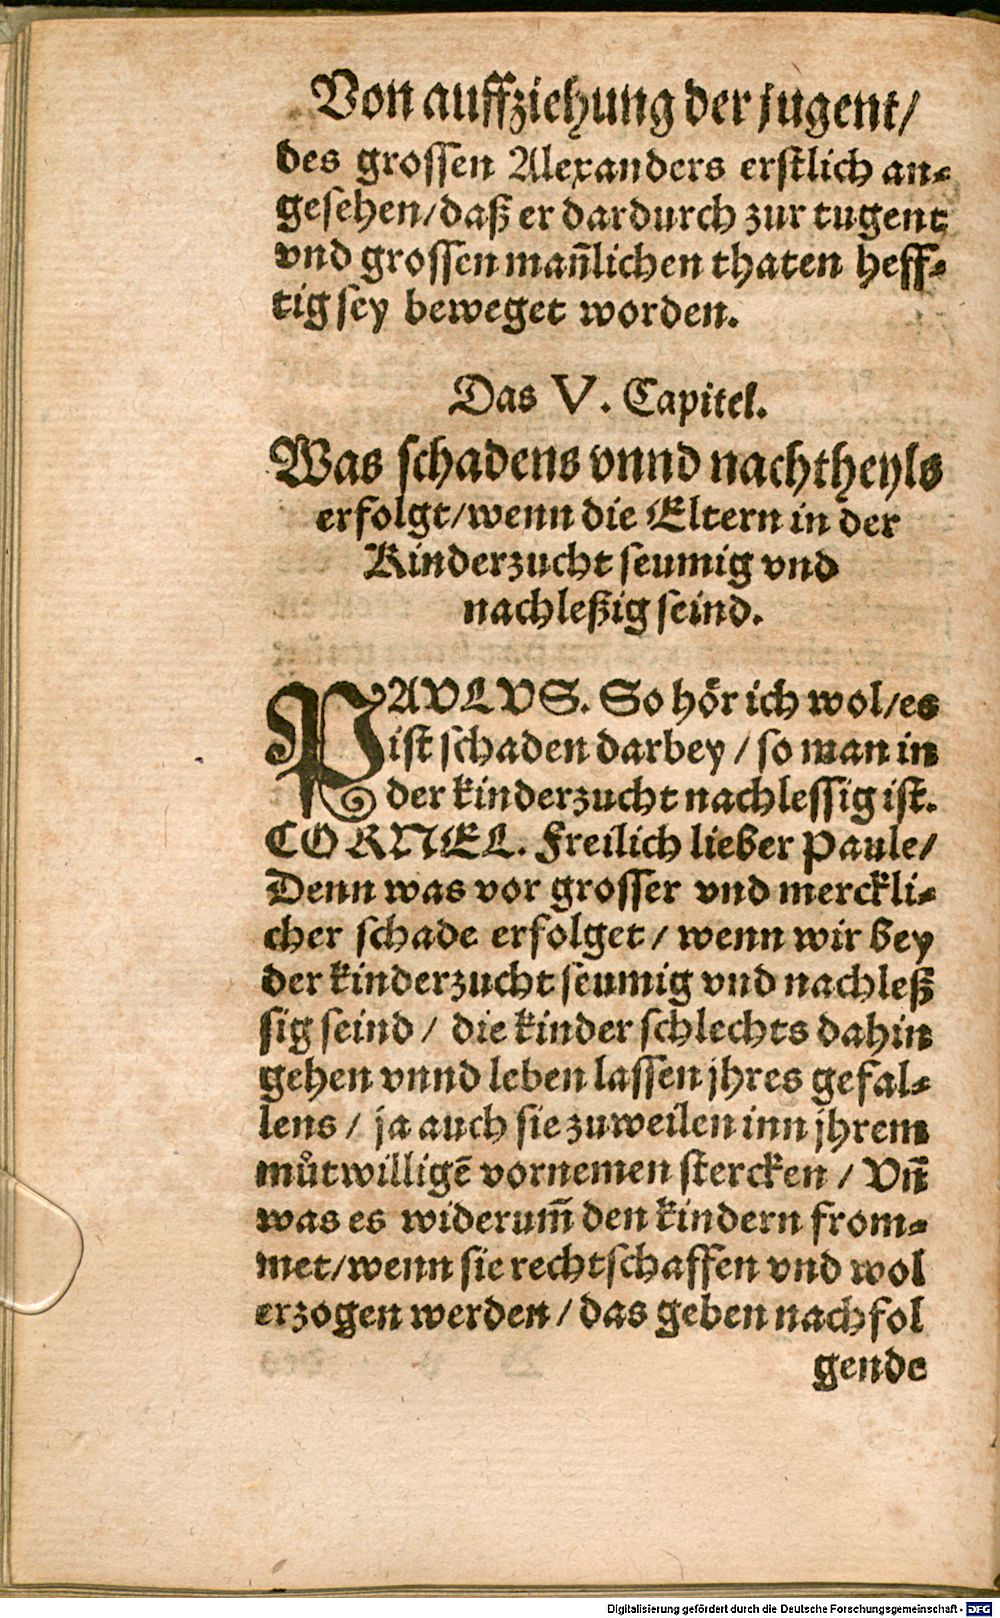 Von auffziehung der jugent/
des grossen Alexanders erstlich an-
gesehen/daß er dardurch zur tugent
vnd grossen mañlichen thaten heff-
tig sey beweget worden.
Das V. Capitel.
Was schadens vnnd nachtheyls
erfolgt/wenn die Eltern in der
Kinderzucht seumig vnd
nachleßig seind.
PAVLVS. So hör ich wol/es
ist schaden darbey / so man in
der kinderzucht nachlessig ist.
CORNEL. Freilich lieber Paule/
Denn was vor grosser vnd merckli-
cher schade erfolget / wenn wir bey
der kinderzucht seumig vnd nachleß
sig seind / die kinder schlechts dahin
gehen vnnd leben lassen jhres gefal-
lens / ja auch sie zuweilen inn jhrem
můtwilligē vornemen stercken / Vñ
was es widerum̃ den kindern from-
met/wenn sie rechtschaffen vnd wol
erzogen werden / das geben nachfol
gende
Digitalisierung gefördert durch die Deutsche Forschungsgemeinschaft - DFG